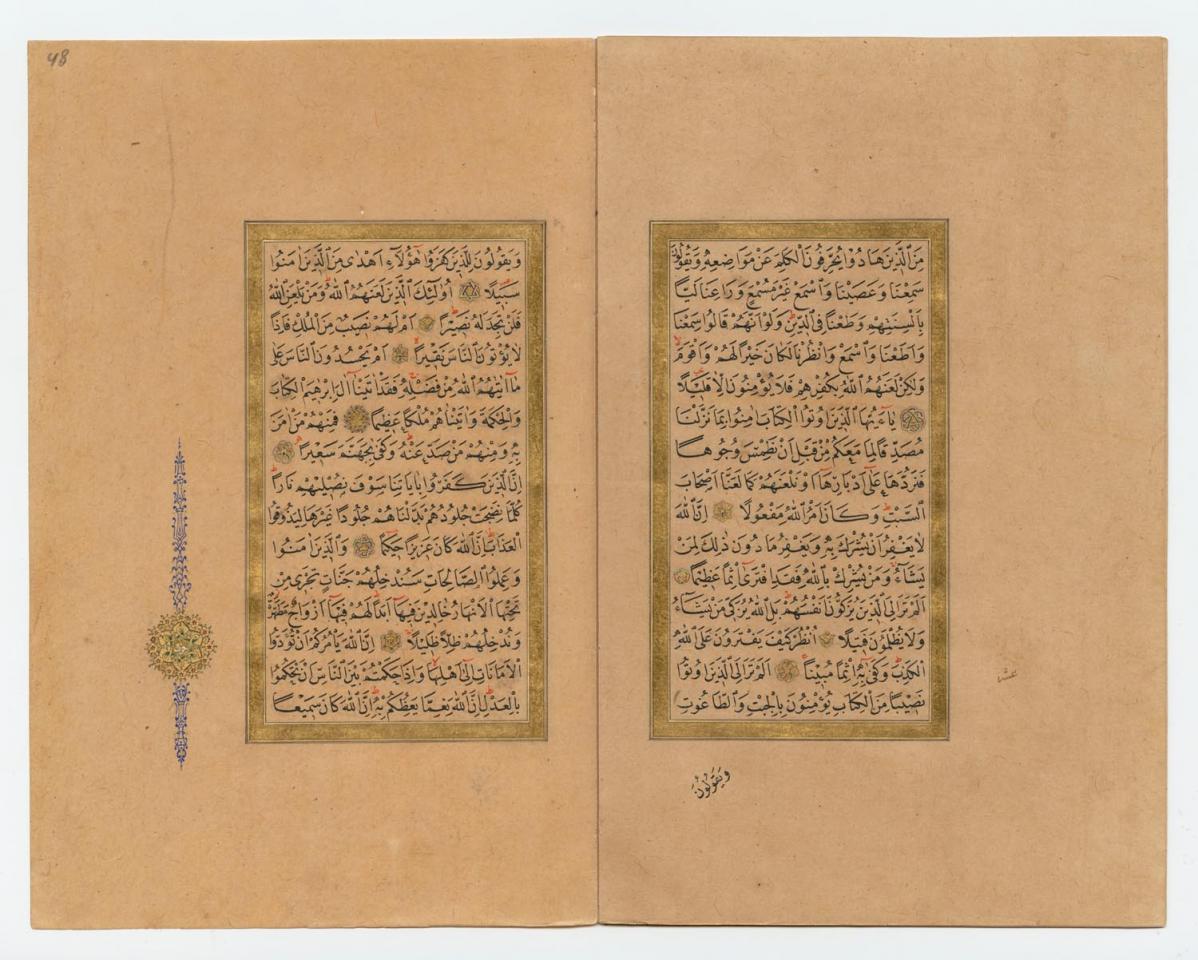 مِنَ الَّذِينَ هَادُوا يُحَرِّفُونَ الْكَلِمَ عَنْ مَوَاضِعِهِ وَيَقُولُونَ
سَمِعْنَا وَعَصَيْنَا وَاسْمَعْ غَيْرَ مُسْمَعٍ وَرَاعِنَا لَيًّا
بِأَلْسِنَتِهِمْ وَطَعْنًا فِي الدِّينِ وَلَوْ أَنَّهُمْ قَالُوا سَمِعْنَا
وَأَطَعْنَا وَاسْمَعْ وَانْظُرْنَا لَكَانَ خَيْرًا لَهُمْ وَأَقْوَمَ
وَلَكِنْ لَعَنَهُمُ اللَّهُ بِكُفْرِهِمْ فَلَا يُؤْمِنُونَ إِلَّا قَلِيلًا
يَاءَيُّهَا الَّذِينَ أُوتُوا الْكِتَابَ آمِنُوا بِمَا نَزَّلْنَا
مُصَدِّقًا لِمَا مَعَكُمْ مِنْ قَبْلِ أَنْ نَطْمِسَ وُجُوهًا
فَنَرُدَّهَا عَلَى أَدْبَارِهَا أَوْ نَلْعَنَهُمْ كَمَا لَعَنَّا أَصْحَابَ
السَّبْتِ وَكَانَ أَمْرُ اللَّهِ مَفْعُولًا إِنَّ اللَّهَ
لَا يَغْفِرُ أَنْ يُشْرَكَ بِهِ وَيَغْفِرُ مَا دُونَ ذَلِكَ لِمَنْ
يَشَاءُ وَمَنْ يُشْرِكْ بِاللَّهِ فَقَدِ افْتَرَى إِثْمًا عَظِيمًا
أَلَمْ تَرَ إِلَى الَّذِينَ يُزَكُّونَ أَنْفُسَهُمْ بَلِ اللَّهُ يُزَكِّي مَنْ يَشَاءُ
وَلَا يُظْلَمُونَ فَتِيلًا أُنْظُرْ كَيْفَ يَفْتَرُونَ عَلَى اللَّهِ
الْكَذِبَ وَكَفَى بِهِ إِثْمًا مُبِينًا أَلَمْ تَرَ إِلَى الَّذِينَ أُوتُوا
نَصِيبًا مِنَ الْكِتَابِ يُؤْمِنُونَ بِالْجِبْتِ وَالطَّاغُوتِ
وَيَقُولُونَ
عشر
48
وَيَقُولُونَ لِلَّذِينَ كَفَرُوا هَؤُلَاءِ أَهْدَى مِنَ الَّذِينَ آمَنُوا
سَبِيلًا أُولَئِكَ الَّذِينَ لَعَنَهُمُ اللَّهُ وَمَنْ يَلْعَنِ اللَّهُ
فَلَنْ تَجِدَ لَهُ نَصِيرًا أَمْ لَهُمْ نَصِيبٌ مِنَ الْمُلْكِ فَإِذًا
لَا يُؤْتُونَ النَّاسَ نَقِيرًا أَمْ يَحْسُدُونَ النَّاسَ عَلَى
مَا آتَيهُمُ اللَّهُ مِنْ فَضْلِهِ فَقَدْ آتَيْنَا آلَ إِبْرَهِيمَ الْكِتَابَ
وَالْحِكْمَةَ وَآتَيْنَاهُمْ مُلْكًا عَظِيمًا فَمِنْهُمْ مَنْ آمَنَ
بِهِ وَمِنْهُمْ مَنْ صَدَّ عَنْهُ وَكَفَى بِجَهَنَّمَ سَعِيرًا
إِنَّ الَّذِينَ كَفَرُوا بِآيَاتِنَا سَوْفَ نُصْلِيهِمْ نَارًا
كُلَّمَا نَضِجَتْ جُلُودُهُمْ بَدَّلْنَاهُمْ جُلُودًا غَيْرَهَا لِيَذُوقُوا
الْعَذَابَ إِنَّ اللَّهَ كَانَ عَزِيزًا حَكِيمًا وَالَّذِينَ آمَنُوا
وَعَمِلُوا الصَّالِحَاتِ سَنُدْخِلُهُمْ جَنَّاتٍ تَجْرِي مِنْ
تَحْتِهَا الْأَنْهَارُ خَالِدِينَ فِيهَا أَبَدًا لَهُمْ فِيهَا أَزْوَاجٌ مُطَهَّرَةٌ
وَنُدْخِلُهُمْ ظِلًّا ظَلِيلًا إِنَّ اللَّهَ يَأْمُرُكُمْ أَنْ تُؤَدُّوا
الْأَمَانَاتِ إِلَى أَهْلِهَا وَإِذَا حَكَمْتُمْ بَيْنَ النَّاسِ أَنْ تَحْكُمُوا
بِالْعَدْلِ إِنَّ اللَّهَ نِعِمَّا يَعِظُكُمْ بِهِ إِنَّ اللَّهَ كَانَ سَمِيعًا